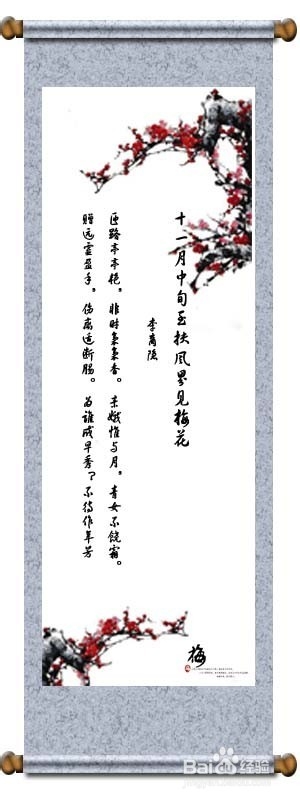 十一月中旬至扶风界见梅花
李商隐
匝路亭亭艳，非时袅袅香。素娥惟与月，青女不饶霜。
赠远虚盈手，伤离适断肠。为谁成早秀？不待作年芳
梅
Bai 百度 经验